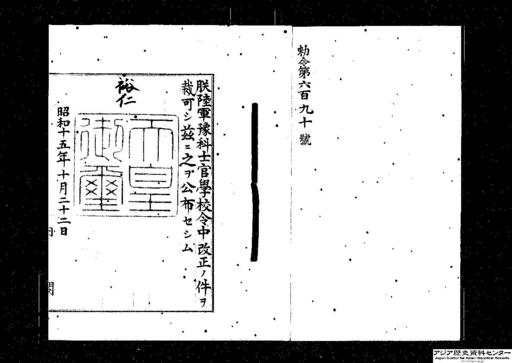 勅令第六百九十號
朕陸軍豫科士官學校令中改正ノ件ヲ
裁可シ茲ニ之ヲ公布セシム
裕仁
天皇
御璽
昭和十五年十月二十二日
アジア歴史資料センター
Japan Center for Asian Historical Records